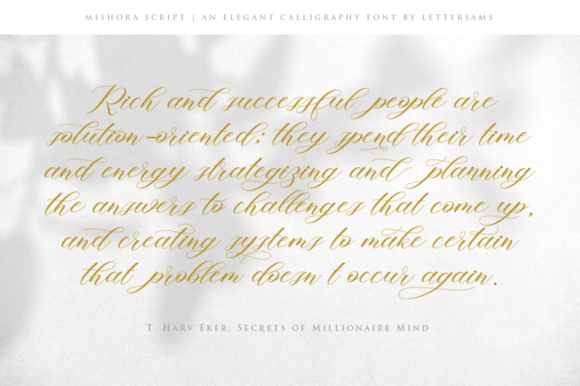 MISHORA SCRIPT | AN ELEGANT CALLIGRAPHY FONT BY LETTERSAMS
Rich and successful people are
solution-oriented; they spend their time
and energy strategizing and planning
the answers to challenges that come up,
and creating systems to make certain
that problem doesn't occur again.
T. Harv Eker, Secrets of Millionaire Mind